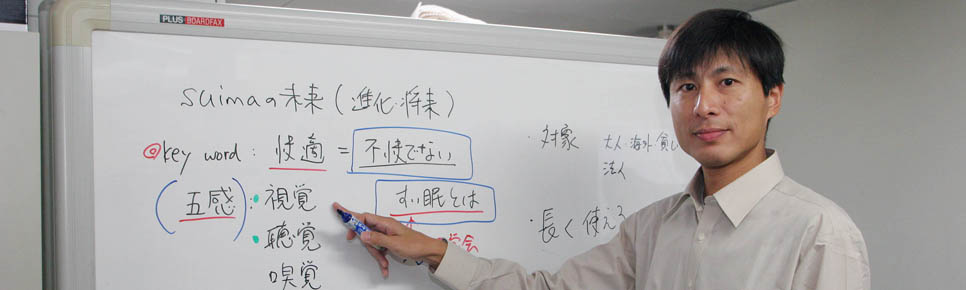 PLUS BOARDFAX
suimaの未来(進化・将来)
◎key word: 快適 = 不快でない
(五感): ・視覚
すい眠とは
・聴覚
学会
嗅覚
・対象 大人・海外・貸し
法人
・長く使える